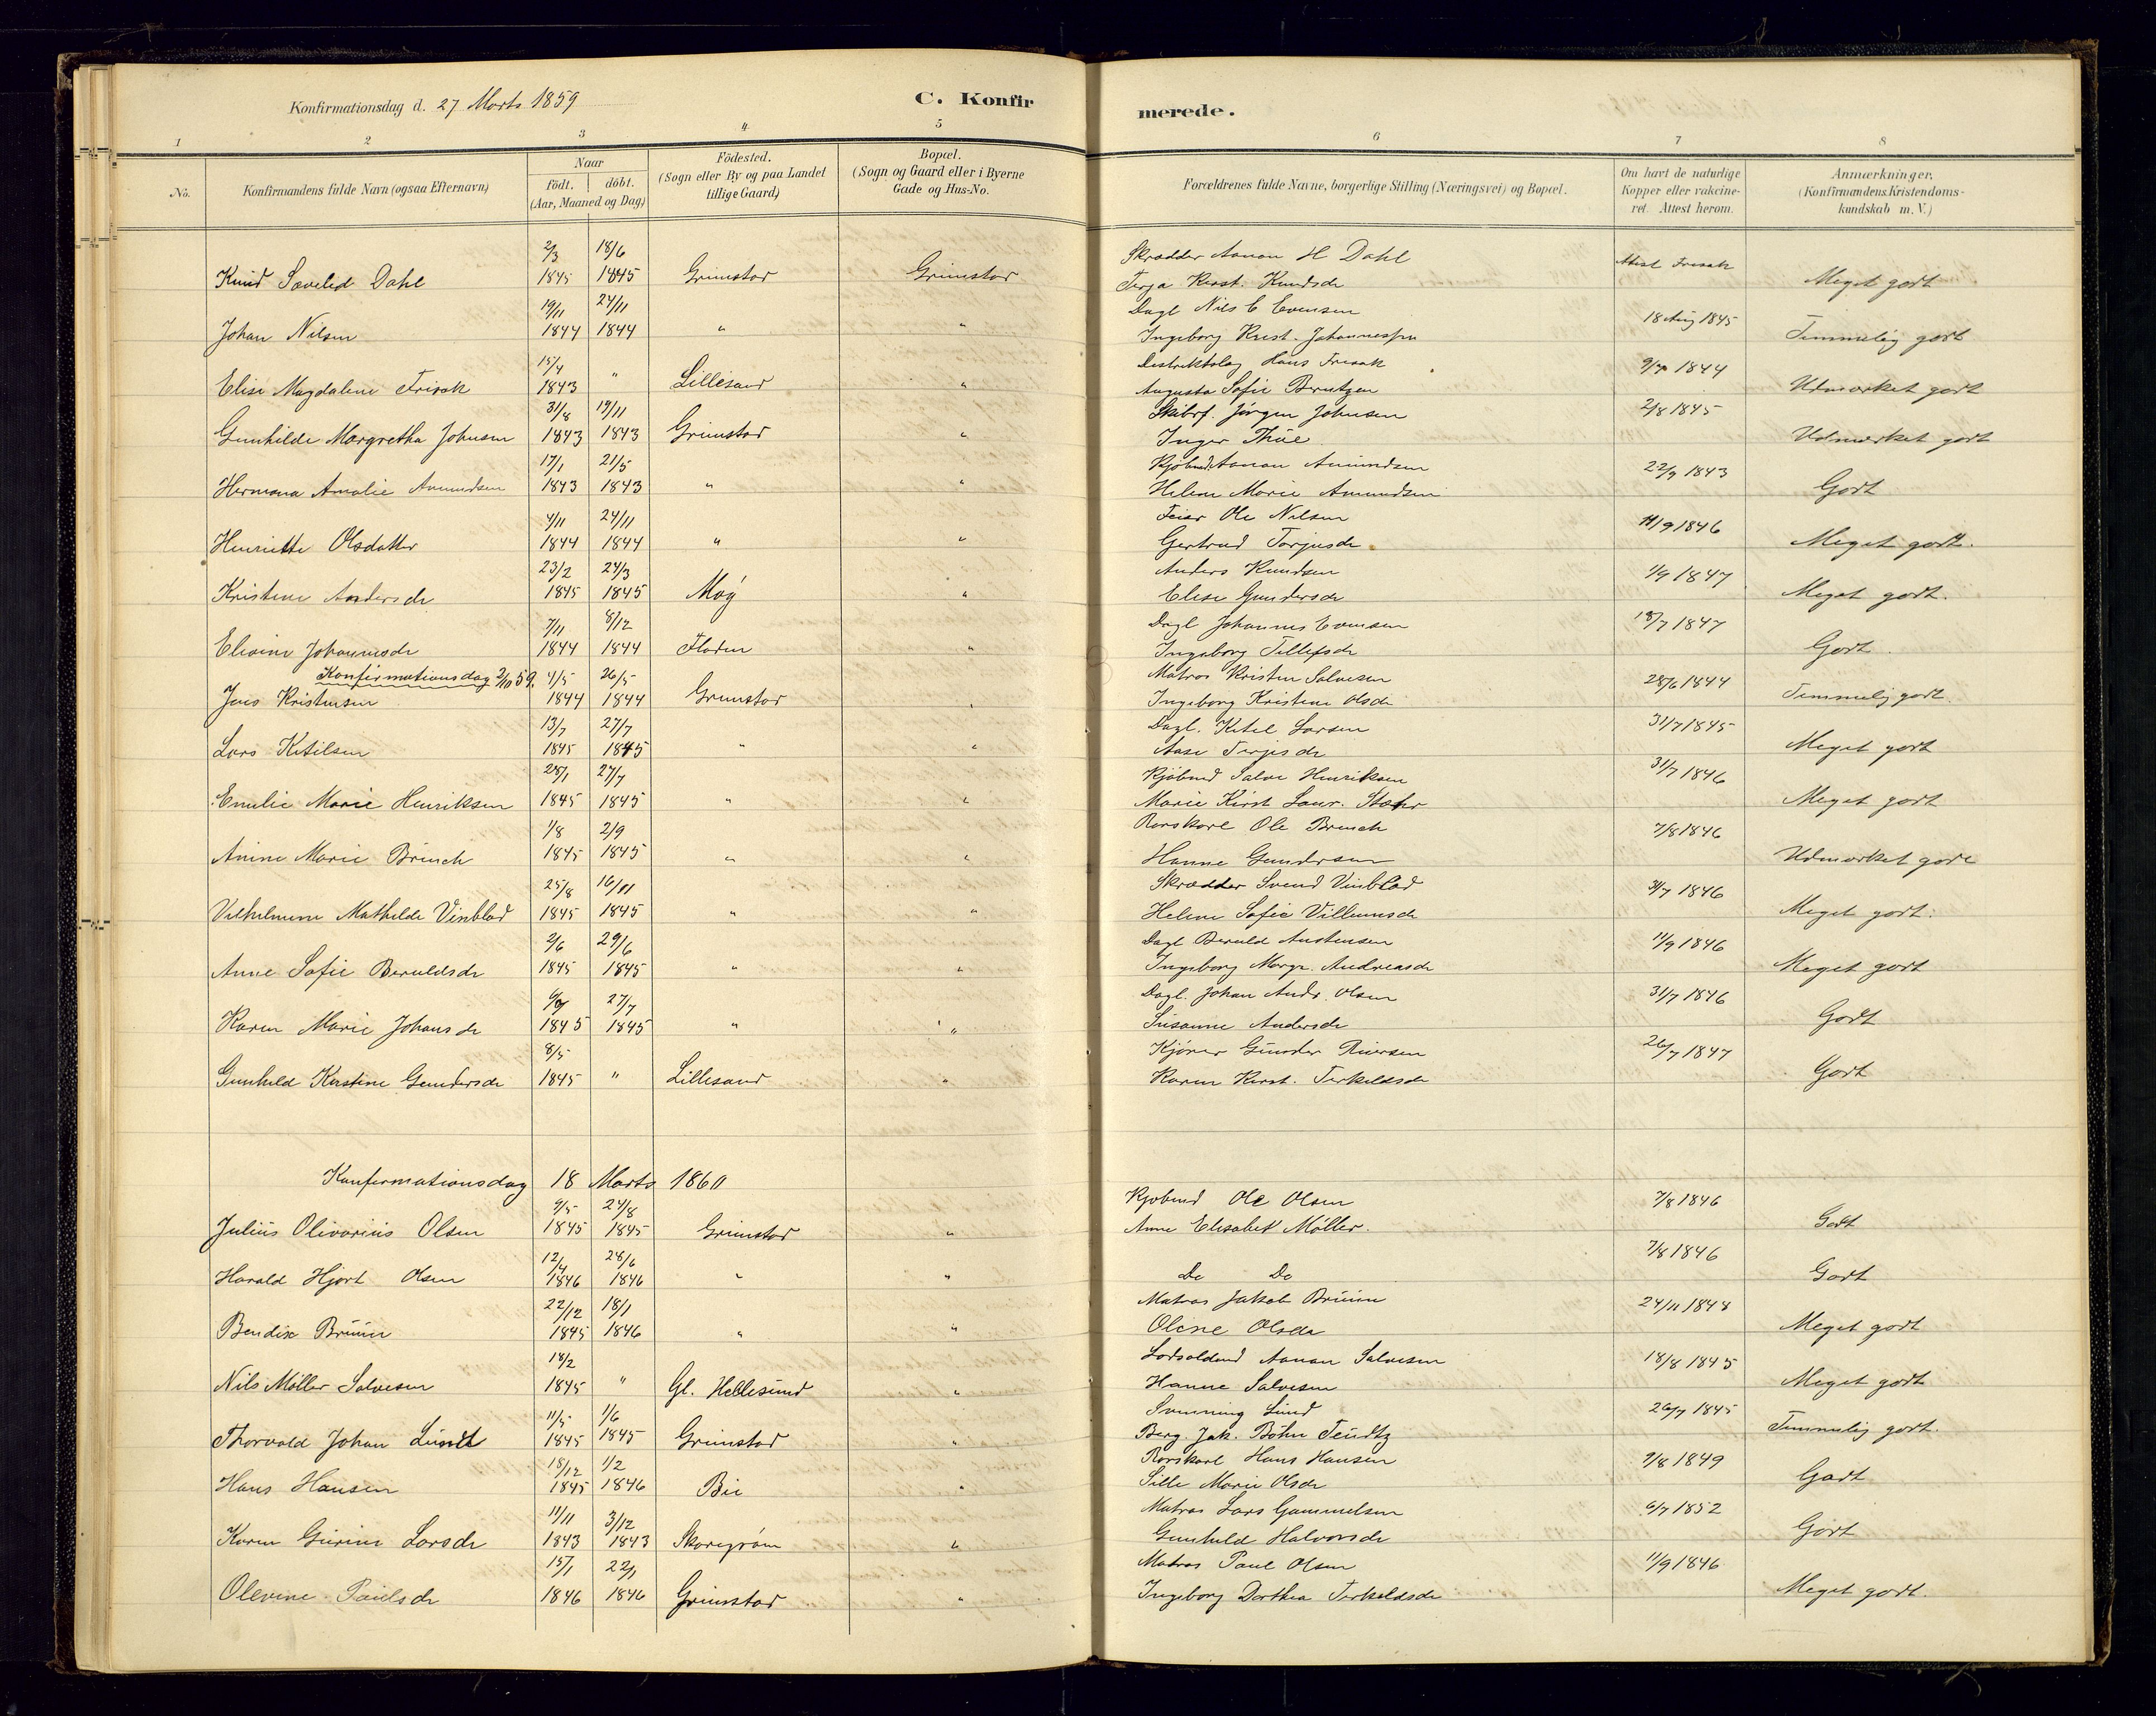 Konfirmationsdag d. 27 Marts 1859
C. Konfirmerede.
1 2 3 4 5 6 7 8
No.
Konfirmandens fulde Navn (ogsaa Efternavn)
Naar
födt. döbt.
(Aar, Maaned og Dag)
Födested.
(Sogn eller By og paa Landet
tillige Gaard)
Bopæl.
(Sogn og Gaard eller i Byerne
Gade og Hus-No.
Forældrenes fulde Navne, borgerlige Stilling (Næringsvei) og Bopæl.
Om havt de naturlige
Kopper eller vakcine-
ret. Attest herom.
Anmærkninger.
(Konfirmandens Kristendoms-
kundskab m. V.)
2/3 18/6 Skrædder Aanon H Dahl
Knud Dahl 1845 1845 Grimstad Grimstad Terja Kirst. Knudsdr Attest Frisak Meget godt
19/11 24/11 Dagl Nils E Evensen
Johan Nilsen 1844 1844 " " Ingeborg Krist. 18 Aug 1845 Temmelig godt
15/4 Distriktslæg Hans Frisak
Elise Magdalene Frisak 1843 " Lillesand " Augusta Sofie Berntzen 1844 Udmærket godt
31/8 19/11 Skibsf. Jørgen Johnsen
Gunhilde Margretha Johnsen 1843 1843 Grimstad " Inger Thue 2/8 1845 Udmærket godt
17/1 21/5 Kjöbmd Aanon Amundsen
Hermana Amalie Amundsen 1843 1843 " " Helene Marie Amundsen 22/9 1843 Godt
4/11 24/11 Feier Ole Nilsen
Henriette Olsdatter 1844 1844 " " Gertrud Torjusdr 11/9 1846 Meget godt.
23/2 24/3 Anders Knudsen
Kristine Andersdr 1845 1845 Møg " Elise Gundersdr 1/9 1847 Meget godt.
7/11 8/12 Dagl Johannes Evensen
Elevine Johannesdr 1844 1844 Floden " Ingeborg Tellefsdr 18/7 1847 Godt.
Konfirmationsdag 2/10 59. 4/5 26/5 Matros Kristen Salvesen
Jens Kristensen 1844 1844 Grimstad " Ingeborg Kristine Olsdr 28/6 1844 Temmelig godt
13/7 27/7 Dagl. Ketel Larsen
Lars Ketilsen 1845 1845 " " Aase Terjesdr 31/7 1845 Meget godt
28/1 27/7 Kjöbmd Salve Henriksen
Emilie Marie Henriksen 1845 1845 " " Marie Kirst Laur. Stæhr 31/7 1846 Meget godt
1/8 2/9 Rorskarl Ole Brinch
Anine Marie Brinch 1845 1845 " " Hanne Gundersen 7/8 1846 Udmærket godt
25/8 16/11 Skrædder Svend Vinblad
Vilhelmine Mathilde Vinblad 1845 1845 " " Helene Sofie Villumsdr 31/7 1846 Meget godt.
2/6 29/6 Dagl Beruld Austensen
Anne Sofie Beruldsdr 1845 1845 " " Ingeborg Margr. Andreasdr 11/9 1846 Meget godt
27/7 Dagl. Johan Andr. Olsen
Karen Marie Johansdr 1845 1845 " " Susanne Andersdr 31/7 1846 Godt
8/5 Kjörer Gunder Riersen
Gunhild Kirstine Gundersdr 1845 " Lillesand " Karen Kirst. Terkildsdr 26/7 1847 Godt
Konfirmationsdag 18 Marts 1860
9/5 24/8 Kjöbmd Ole Olsen
Julius Olivarius Olsen 1845 1845 Grimstad " Anne Elisabet Møller. 7/8 1846 Godt
12/4 28/6
Harald Hjort Olsen 1846 1846 " " Do Do 7/8 1846 Godt
22/12 18/1 Matros Jakob Brüün
Bendix Brüün 1845 1846 " " Oline Olsdr 24/11 1848 Meget godt
18/2 Lodsoldmd Aanon Salvesen
Nils Møller Salvesen 1845 " Gl. Hellesund " Hanne Salvesen 18/8 1845 Meget godt
11/5 1/6 Svenning Lund
Thorvald Johan Lund 1845 1845 Grimstad " Berg. Jak. Böhn Teudtz 26/7 1845 Temmelig godt.
18/12 1/2 Rorskarl Hans Hansen
Hans Hansen 1845 1846 Bie " Sille Marie Olsdr 9/8 1849 Godt
11/11 3/12 Matros Lars Gammelsen
Karen Gurine Larsdr 1843 1843 " Gunhild Halvorsdr 6/7 1852 Godt
15/1 22/1 Matros Paul Olsen
Olevine Paulsdr 1846 1846 Grimstad " Ingeborg Dorthea Terkeldsdr 11/9 1846 Meget godt.